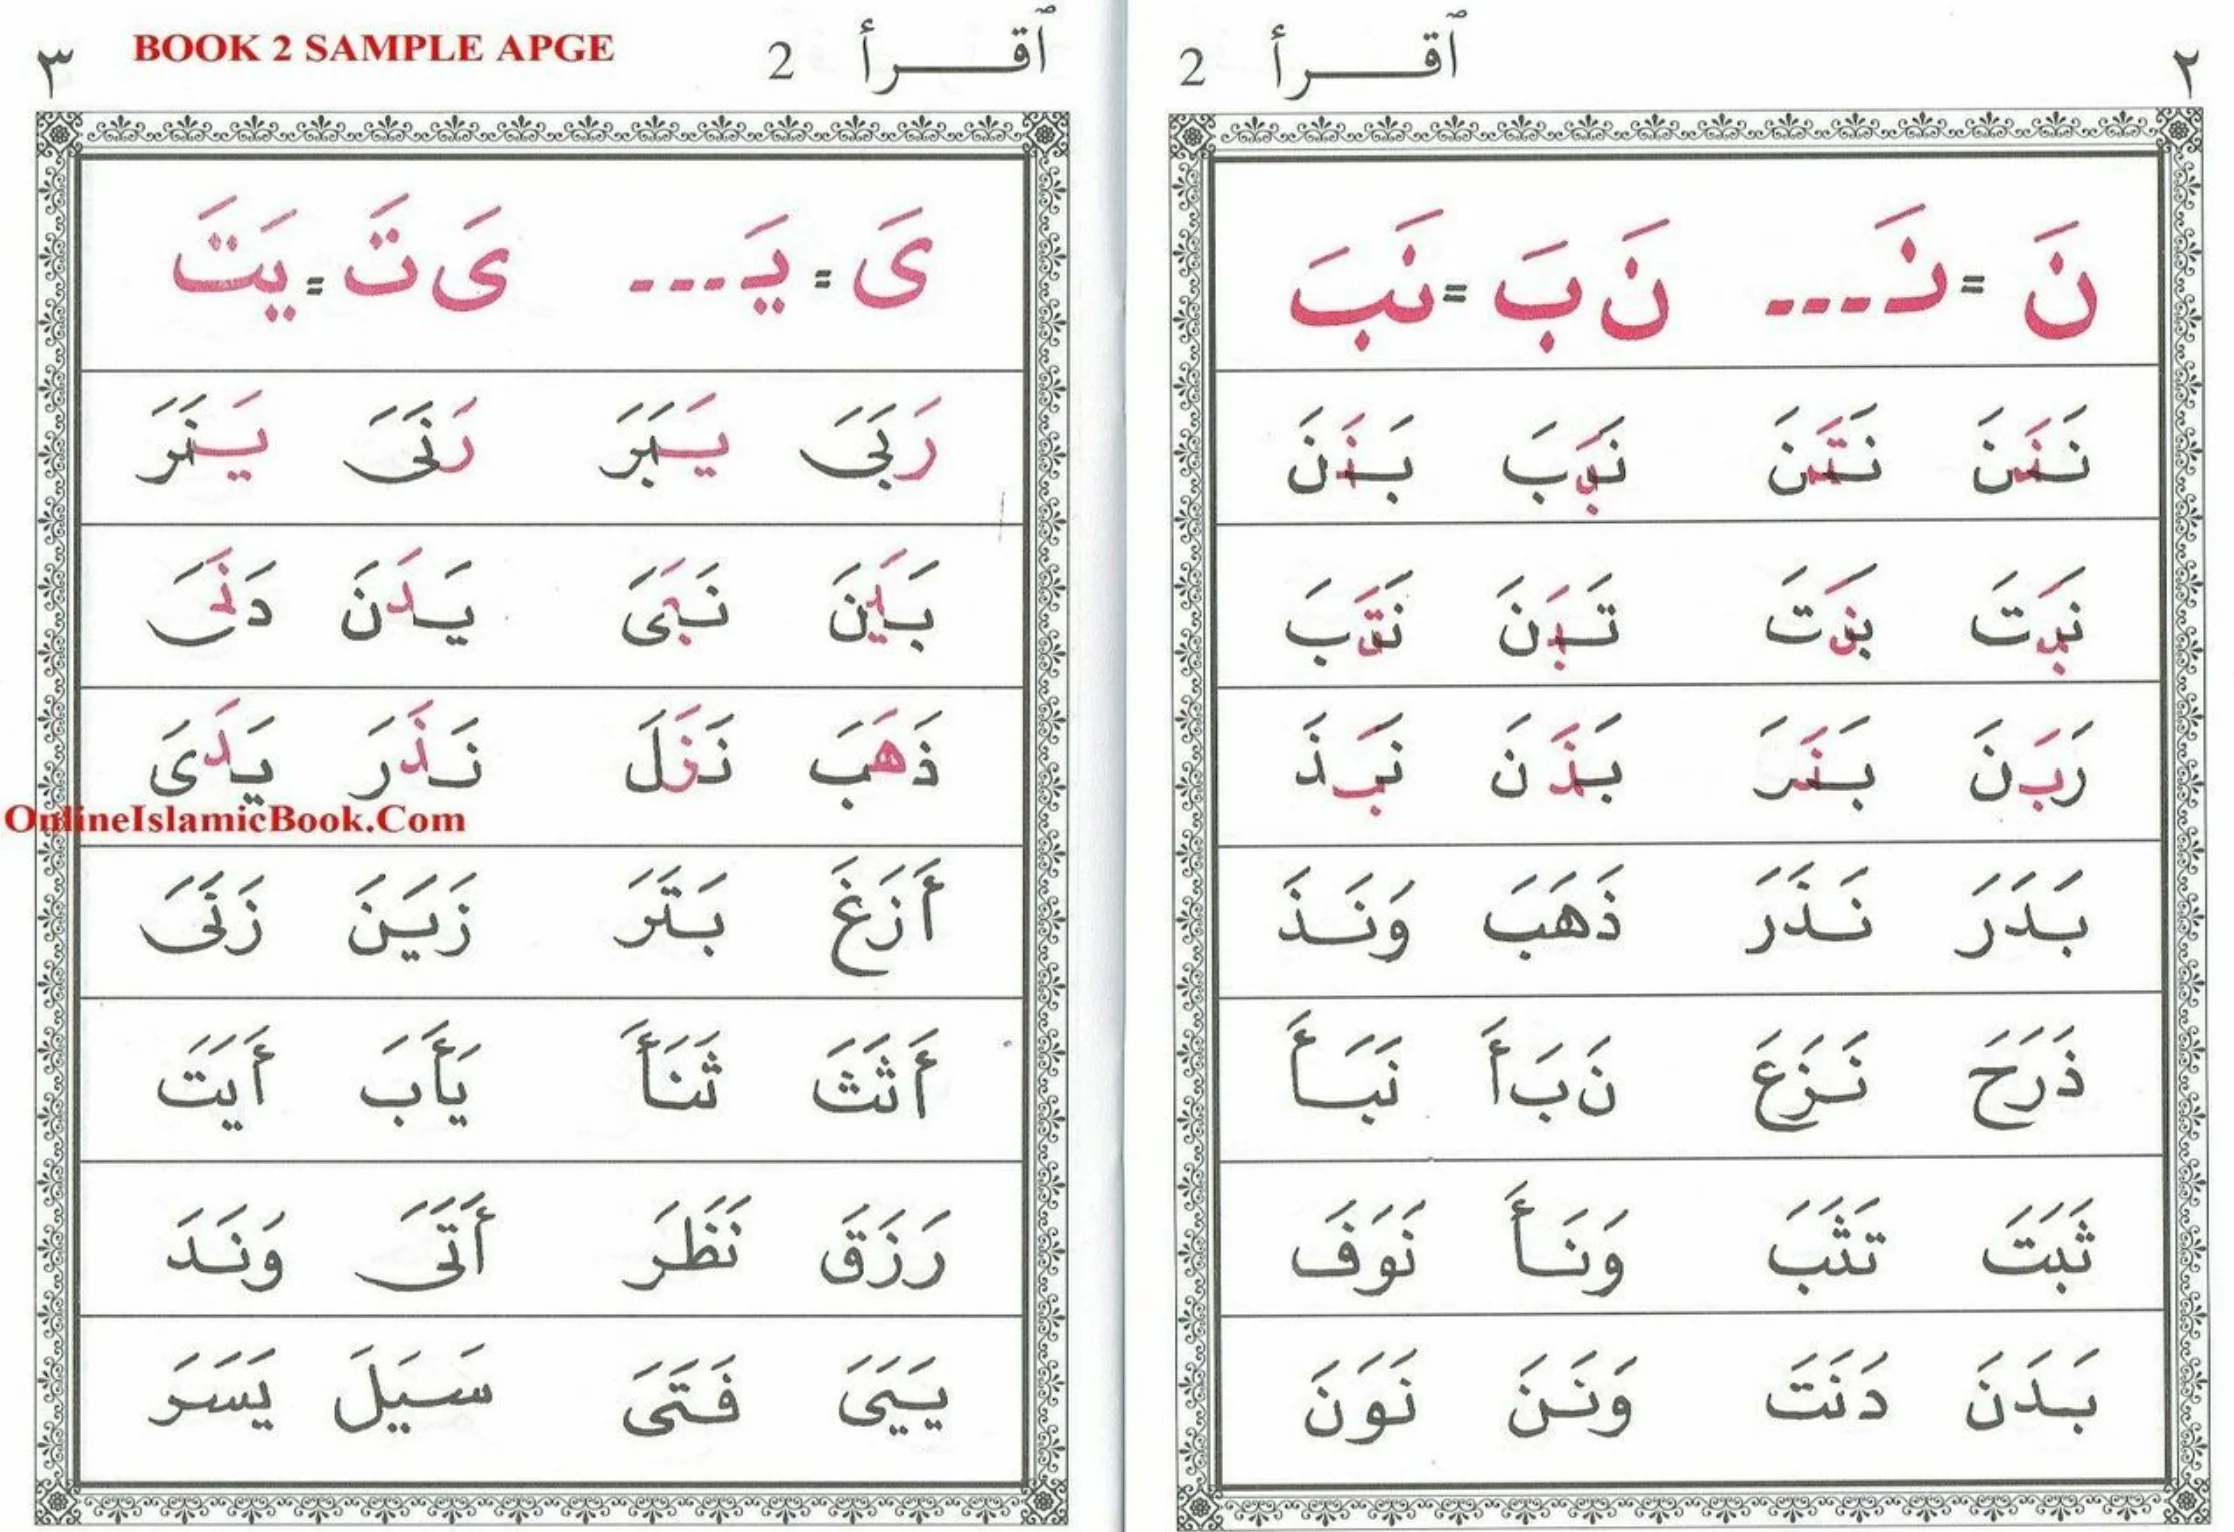 ٢
ٱقـــرأ 2
نَ = نَـ--- نَ بَ = نَبَ
نَنَنَ نَتَنَ نَبَبَ بَنَنَ
نَبَتَ بَنَتَ تَبَنَ نَتَبَ
رَبَنَ بَنَرَ بَذَنَ نَبَذَ
بَدَرَ نَذَرَ ذَهَبَ وَنَذَ
ذَرَحَ نَزَعَ نَ بَ أَ نَبَأَ
ثَبَتَ تَثَبَ وَنَأَ نَوَفَ
بَدَنَ دَنَتَ وَنَنَ نَوَنَ
٣
BOOK 2 SAMPLE APGE
ٱقـــرأ 2
ىَ = يَـ--- ىَ تَ = يَتَ
رَبَىَ يَبَرَ رَنَىَ يَنَرَ
بَيَنَ نَبَىَ يَدَنَ دَنَىَ
ذَهَبَ نَزَلَ نَذَرَ يَدَىَ
OnlineIslamicBook.Com
أَزَغَ بَتَرَ زَيَنَ زَنَىَ
أَثَثَ ثَنَأَ يَأَبَ أَيَتَ
رَزَقَ نَظَرَ أَتَىَ وَنَدَ
يَيَىَ فَتَىَ سَيَلَ يَسَرَ